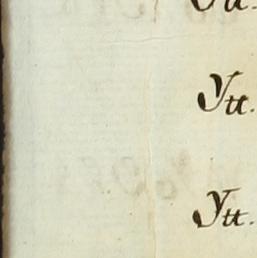 Ytt.
Ytt.